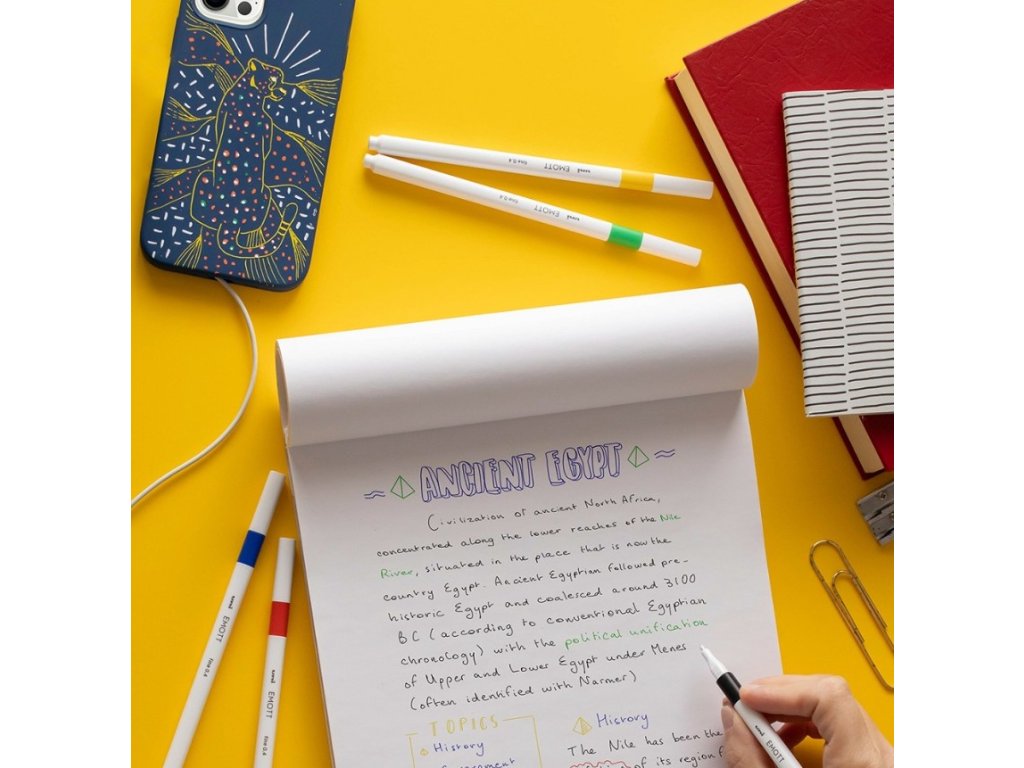 EMOTT uni fine 0.4
EMOTT uni fine 0.4
ANCIENT EGYPT
Civilization of ancient North Africa,
concentrated along the lower reaches of the Nile
River, situated in the place that is now the
country Egypt. Ancient Egyptian followed pre-
historic Egypt and coalesced around 3100
BC (according to conventional Egyptian
chronology) with the political unification
of Upper and Lower Egypt under Menes
(often identified with Narmer)
TOPICS
History
History
The Nile has been the
of its region
uni EMOTT fine 0.4
uni EMOTT fine 0.4
uni EMOTT